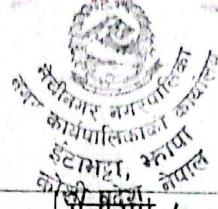 मेचीनगर नगरपालिका
नगर कार्यपालिकाको कार्यालय
ईटाभट्टा, झापा
कोशी प्रदेश
नेपाल